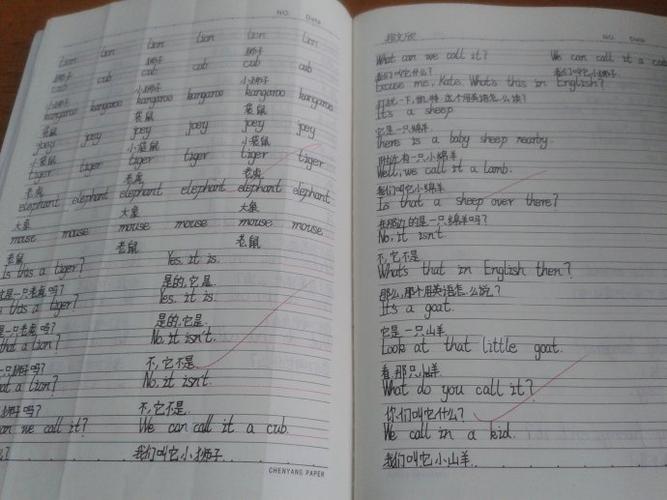 NO. Date
lion lion lion lion lion lion
狮子 狮子 狮子
cub cub cub cub cub
小狮子 小狮子
kangaroo kangaroo kangaroo kangaroo kangaroo
袋鼠 袋鼠 袋鼠
joey joey joey joey joey joey
小袋鼠 小袋鼠 小袋鼠
tiger tiger tiger tiger tiger
老虎 老虎 老虎
elephant elephant elephant elephant elephant
大象 大象 大象
mouse mouse mouse mouse mouse mouse
老鼠 老鼠 老鼠
Is this a tiger? Yes. it is.
是一只老虎吗? 是的,它是.
this a tiger? Yes. it is.
一只老虎吗? 是的,它是.
that a lion? No, it isn't.
一只狮子吗? 不,它不是.
at a lion? No, it isn't.
狮子吗? 不,它不是.
an we call it? We can call it a cub.
我们叫它小狮子.
CHENYANG PAPER
NO. Date
What can we call it? We can call it a cub
我们叫它什么? 我们叫它小狮子
Excuse me, Kate. What's this in English?
打扰一下, 凯特. 这个用英语怎么读?
It's a sheep
它是一只绵羊.
There is a baby sheep nearby.
附近有一只小绵羊
Well, we call it a lamb.
我们叫它小绵羊
Is that a sheep over there?
在那边的是一只绵羊吗?
No, it isn't.
不,它不是
What's that in English then?
那么,那个用英语怎么说?
It's a goat.
它是一只山羊.
Look at that little goat.
看,那只小山羊
What do you call it?
你们叫它什么?
We call in a kid.
我们叫它小山羊